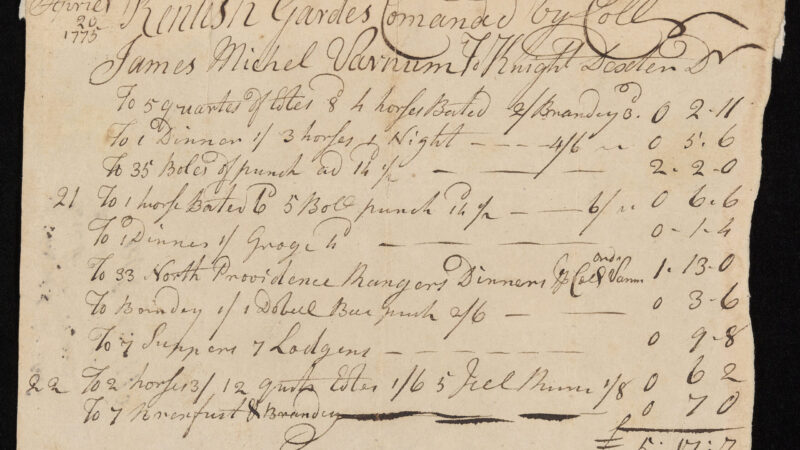 April
20
1775
Kentish Gardes Comanded by Coll
James Michel Varnum To Knight Dexter Dr
To 5 quartes of Otes & 4 horses Bated 2/ Brandey 3d. 0 2-11
To 1 Dinner 1/ 3 horses 1 Night — — — 4/6 0 5-6
To 35 Boles of punch ad 14 1/2 2-2-0
21 To 1 horse Bated 6d 5 Boll punch 14 1/2 — — 6/ 0 6-6
To 1 Dinner 1/ Groge 4d — — — — 0-1-4
To 33 North Providence Rangers Dinners ord. Coll Varnm 1-13-0
To Brandey 1/ 1 Dobel Bole punch 2/6 — — 0 3-6
To 7 Suppers 7 Lodgens — — — — 0 9-8
22 To 2 horses 3/ 12 quts Otes 1/6 5 Jeel Rume 1/8 0 6 2
To 7 brerfust & Brandey 0 7 0
£ 5:17:7